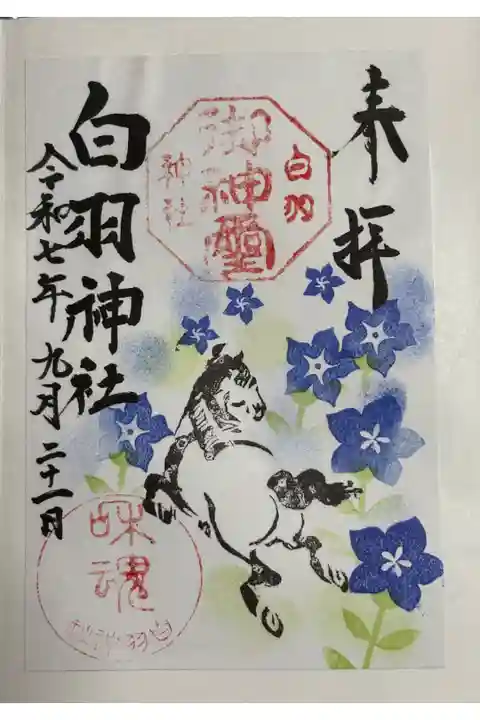 奉拝
白羽
御神璽
神社
白羽神社
令和七年九月二十一日
味魂
白羽神社